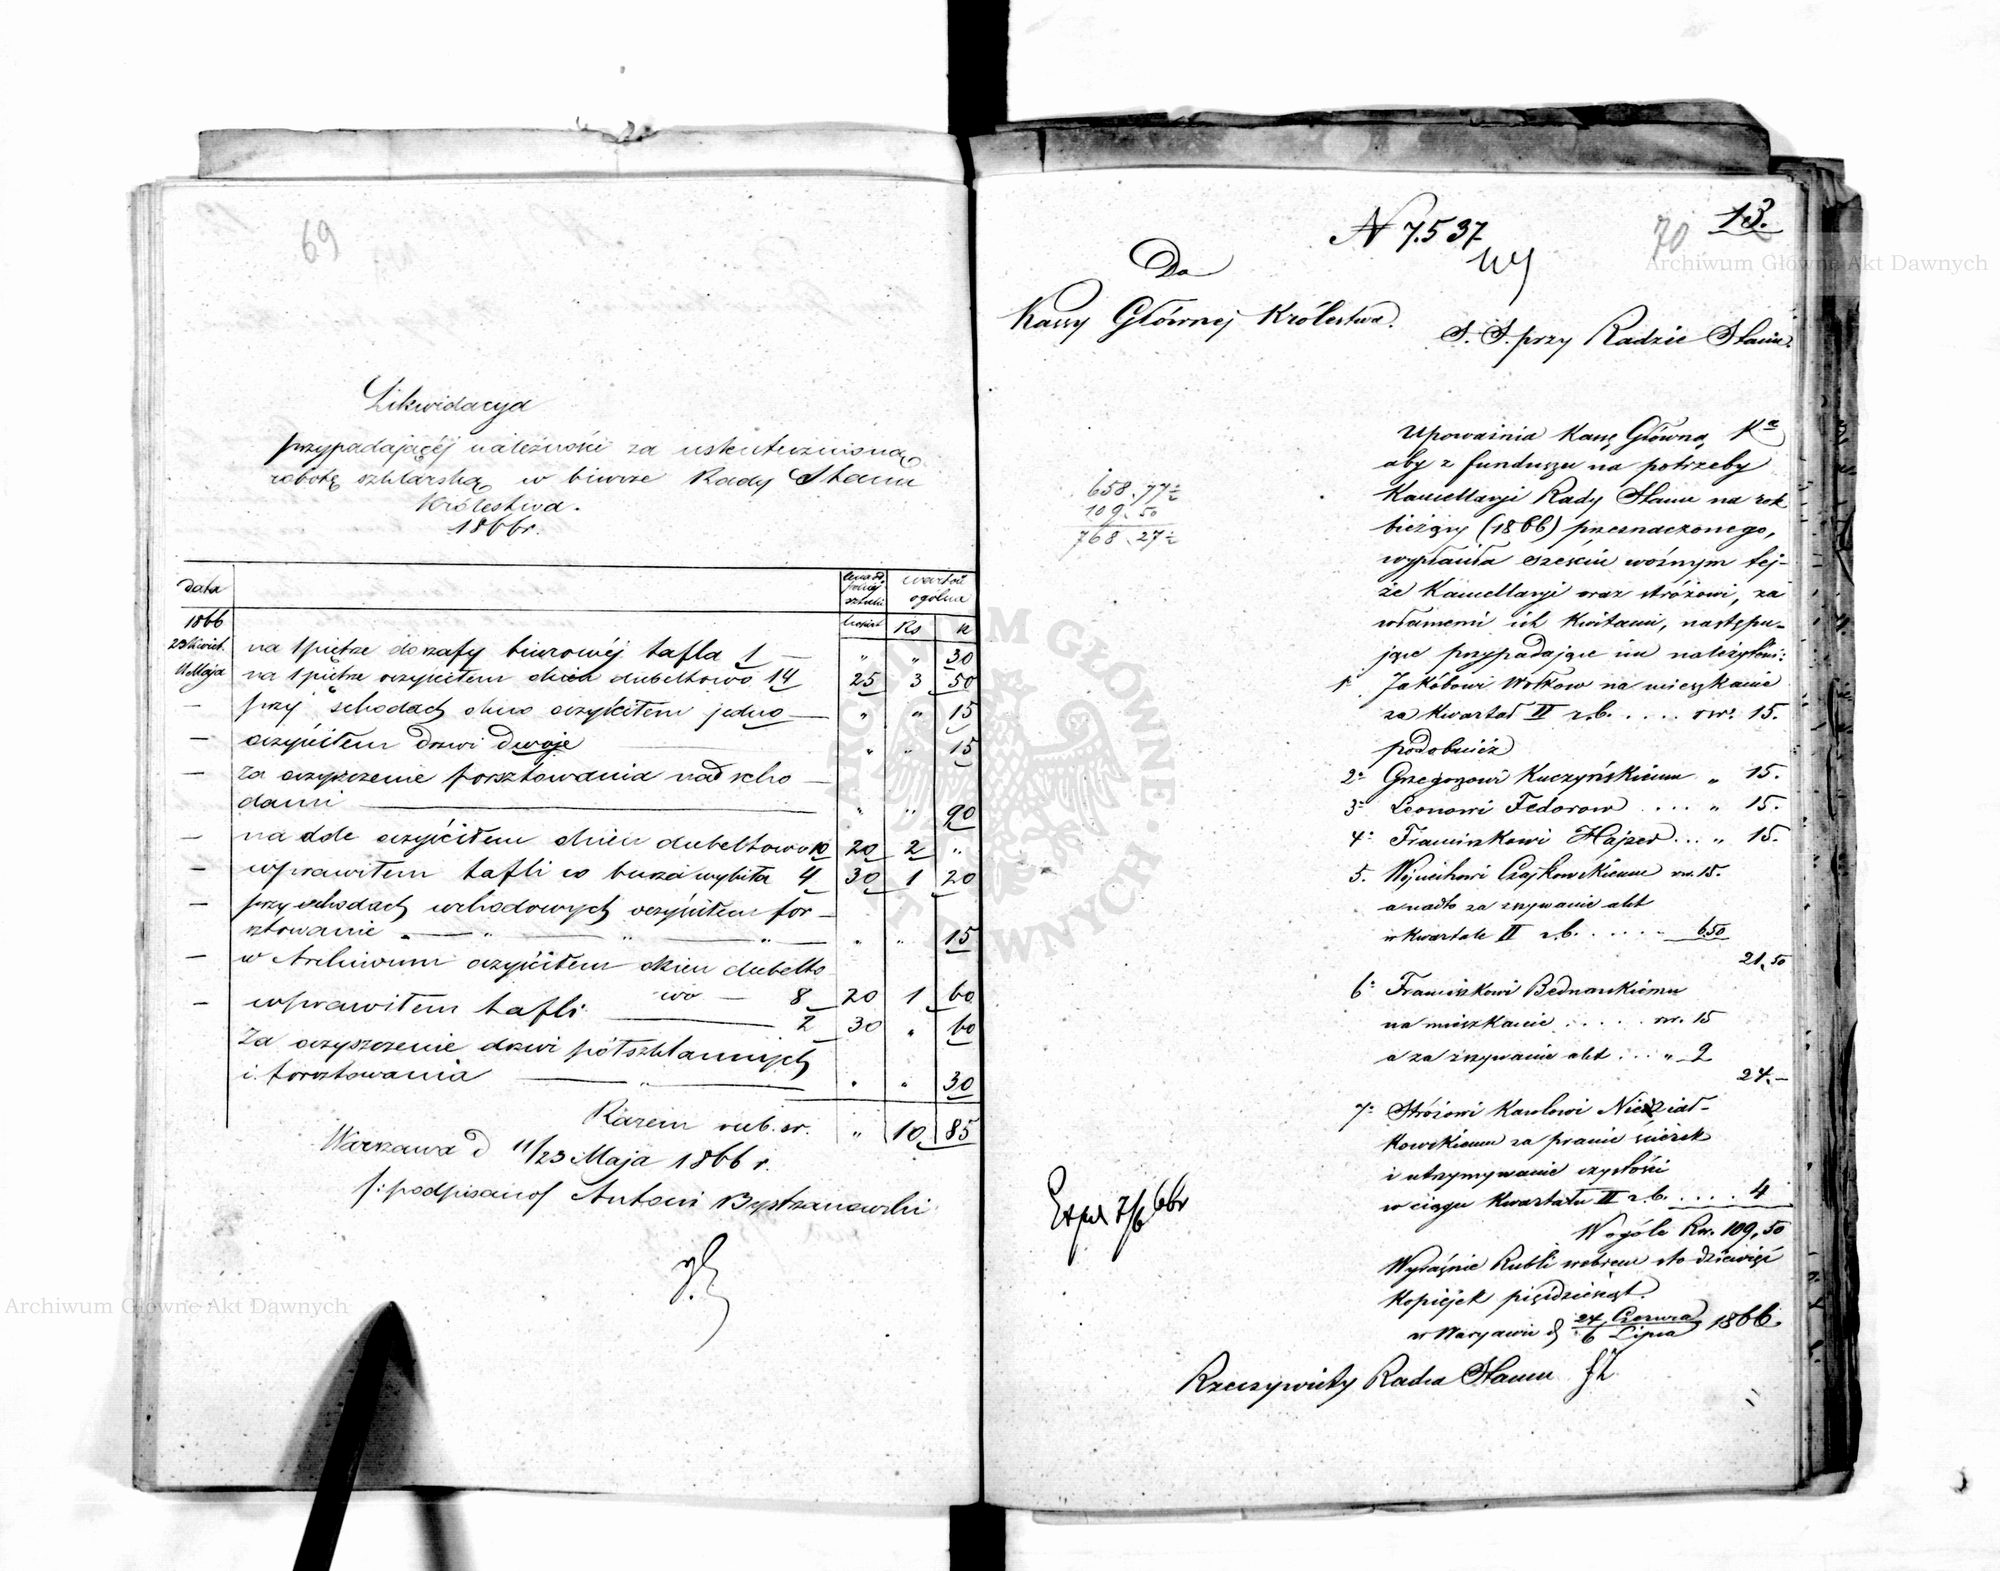 69
Likwidacya
przypadającéj należności za uskutecznioną
robotę szklarską w biurze Rady Stanu
Królestwa.
1866 r.
Data
cena od
jednéj
sztuki
wartość
ogólna
1866
kopiek
Rs
k
23 Kwiet. na 1 piętrze do szafy biurowéj tafla 1 — " " 30
11 Maja na 1 piętrze oczyściłem okien dubeltowo 14 25 3 50
— przy schodach okno oczyściłem jedno — " " 15
— oczyściłem drzwi dwoje " " 15
— za oczyszczenie forsztowania nad scho-
dami — " " 90
— na dole oczyściłem okien dubeltowo 10 20 2 "
— wprawiłem tafli co burza wybiła 4 30 1 20
— przy schodach wchodowych oczyściłem for-
sztowanie — " — " — " — " " 15
— w Archiwum oczyściłem okien dubelto
wo — 8 20 1 60
— wprawiłem tafli — 2 30 " 60
Za oczyszczenie drzwi półszklannych
i forsztowania — " — " " 30
Razem rub. sr. " 10 85
Warszawa d 11/23 Maja 1866 r.
/: podpisano/ Antoni Bystrzanowski
N 7.537
70
13.
Do
Kassy Głównej Królestwa.
S. S. przy Radzie Stanu.
Upoważnia Kassę Główną Ka
aby z funduszu na potrzeby
Kancellaryi Rady Stanu na rok
bieżący (1866) przeznaczonego,
wypłaciła sześciu woźnym tej-
że Kancellaryi oraz stróżowi, za
własnemi ich Kwitami, następu-
jące przypadające im należytości:
658.77½
109.50
768.27½
1° Jakóbowi Wołkow na mieszkanie
za Kwartał II r.b. . . . . rsr. 15.
podobnież
2° Grzegorzowi Kuczyńskiemu " 15.
3° Leonowi Fedorow . . . " 15.
4° Franciszkowi Hajzer . . . " 15.
5. Wojciechowi Czajkowskiemu rsr. 15.
a nadto za zszywanie akt
w Kwartale II r.b. . . . . . 6.50
21,50
6° Franciszkowi Bednarskiemu
na mieszkanie . . . . . rsr. 15
a za zszywanie akt . . . " 9
24.—
7° Stróżowi Karolowi Niedział-
kowskiemu za pranie ścierek
i utrzymywanie czystości
w ciągu Kwartału II r.b. . . . . 4
W ogóle Rsr. 109,50
Wyraźnie Rubli srebrem sto dziewięć
kopiejek pięćdziesiąt.
w Warszawie d 24 Czerwca / 6 Lipca 1866.
Exped 7/6 66r
Rzeczywisty Radca Stanu
Archiwum Główne Akt Dawnych
Archiwum Główne Akt Dawnych
ARCHIWUM GŁÓWNE AKT DAWNYCH